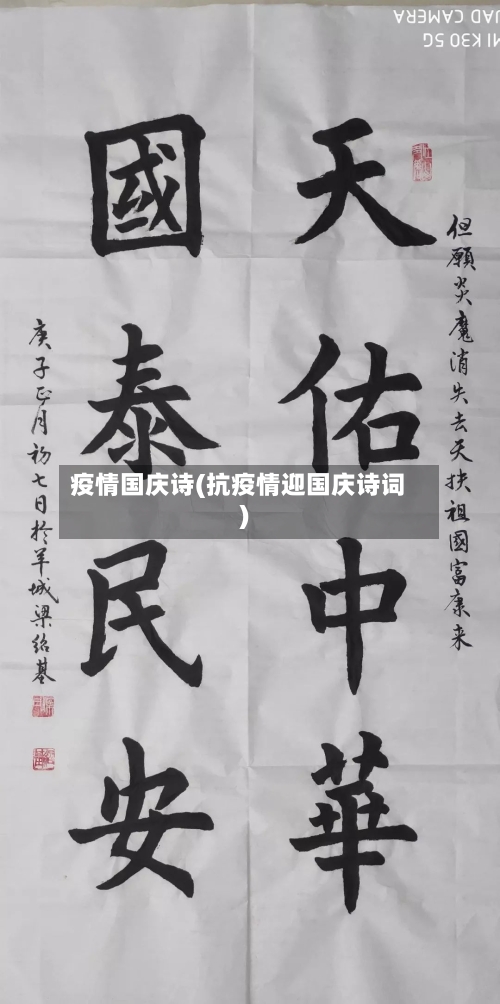 但願炎魔消失去天扶祖國富康来
天佑中華
國泰民安
庚子正月初七日於羊城梁紹基
疫情国庆诗(抗疫情迎国庆诗词
)
MI K30 5G
UAD CAMERA